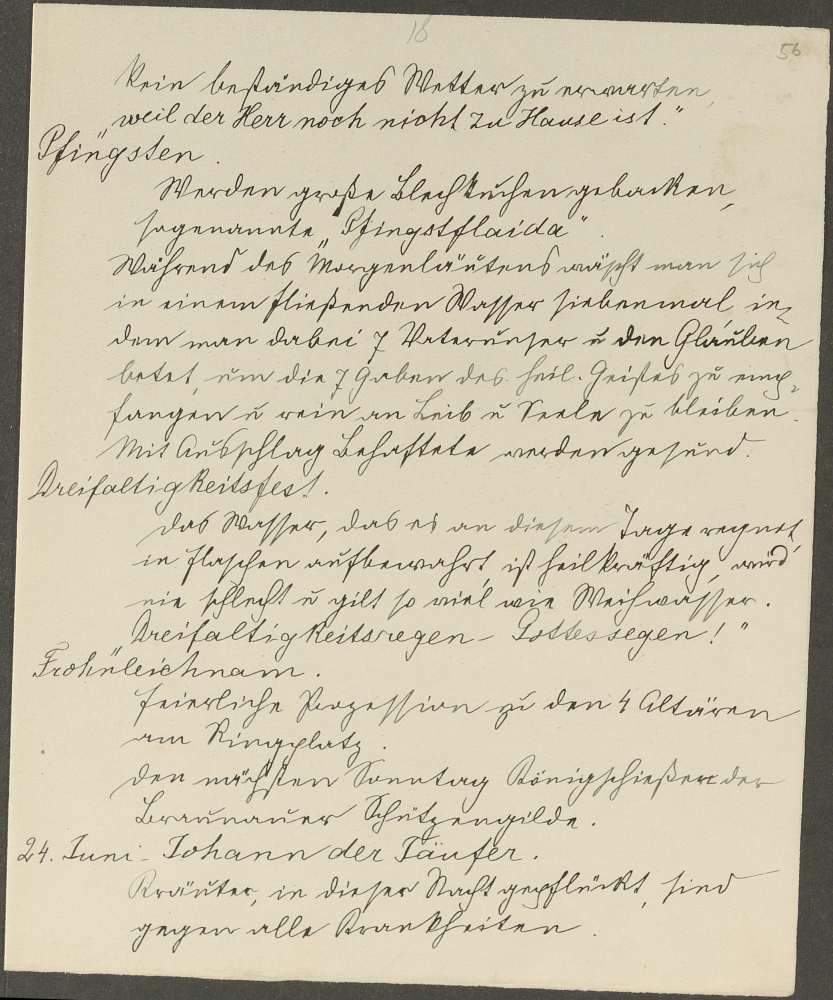 18
56
kein beständiges Wetter zu erwarten,
weil der Herr noch nicht zu Hause ist."
Pfingsten.
Werden große Blechkuchen gebacken,
sogenannte „Pfingstflaida".
Während des Morgenläutens wäscht man sich
in einem fließenden Wasser siebenmal, in-
dem man dabei 7 Vaterunser u den Glauben
betet, um die 7 Gaben des heil. Geistes zu emp-
fangen u rein an Leib u Seele zu bleiben.
Mit Ausschlag Behaftete werden gesund.
Dreifaltigkeitsfest.
Das Wasser, das es an diesem Tage regnet,
in Flaschen aufbewahrt ist heilkräftig, wird
nie schlecht u gilt so viel wie Weihwasser.
„Dreifaltigkeitsregen - Gottessegen!"
Frohnleichnam.
Feierliche Prozession zu den 4 Altären
am Ringplatz.
Den nächsten Sonntag Königschießen der
Braunauer Schützengilde.
24. Juni - Johann der Täufer.
Kräuter, in dieser Nacht gepflückt, sind
gegen alle Krankheiten.